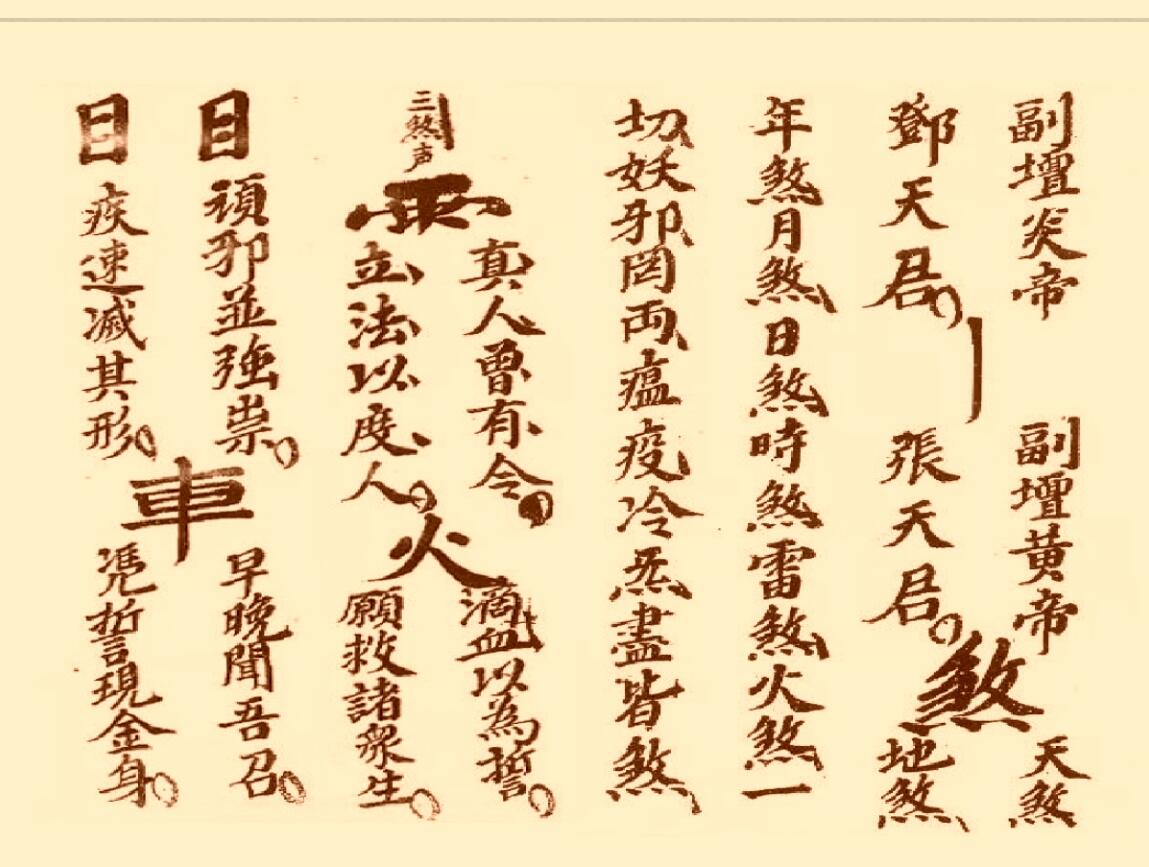 副壇炎帝
鄧天君
副壇黄帝
張天君
煞
天煞
地煞
年煞月煞日煞時煞雷煞火煞一
切妖邪罔両瘟疫冷炁盡皆煞
三煞声
雨
真人曽有令
立法以度人
火
滴血以為誓
願救諸衆生
日
頑邪並強祟
日
疾速滅其形
車
早晚聞吾召
慿誓現金身